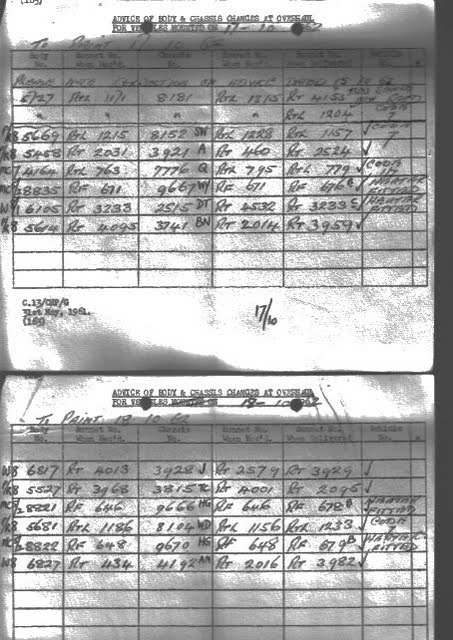 (165)
ADVICE OF BODY & CHASSIS CHANGES AT OVERHAUL
FOR VEHICLES MOUNTED ON 17-10-62
TO PAINT 17 10 62
Body No. Bonnet No. When Rec'd. Chassis No. Bonnet No. When Rec'd. Bonnet No. When Delivered Vehicle No.
PLEASE NOTE CORRECTION ON ADVICE DATED 15 10 62
5727 RTL 1171 8181 RTL 1315 RT 4153
" " " " RTL 1204
5669 RTL 1215 8152 SW RTL 1228 RTL 1157
5458 RT 2031 3921 A RT 460 RT 2524
4164 RTL 763 7776 Q RTL 795 RTL 779
8835 RF 671 9667 WY RF 671 RF 676
6105 RT 3233 2515 DT RT 4532 RT 3233
FITTED
5614 RT 4095 3741 BN RT 2014 RT 3959
C.13/CHP/G
31st May, 1961.
(165)
17/10
ADVICE OF BODY & CHASSIS CHANGES AT OVERHAUL
FOR VEHICLES MOUNTED ON 18-10-62
TO PAINT 18-10-62
Body No. Bonnet No. When Rec'd. Chassis No. Bonnet No. When Rec'd. Bonnet No. When Delivered Vehicle No.
W8 6817 RT 4013 3928 J RT 2579 RT 3929
5527 RT 3968 3815 TC RT 4001 RT 2095
8821 RF 646 9666 HG RF 646 RF 678
FITTED
5681 RTL 1186 8104 WD RTL 1156 RTL 1233
8822 RF 648 9670 HG RF 648 RF 679
FITTED
W8 6827 RT 434 4192 AM RT 2016 RT 3982